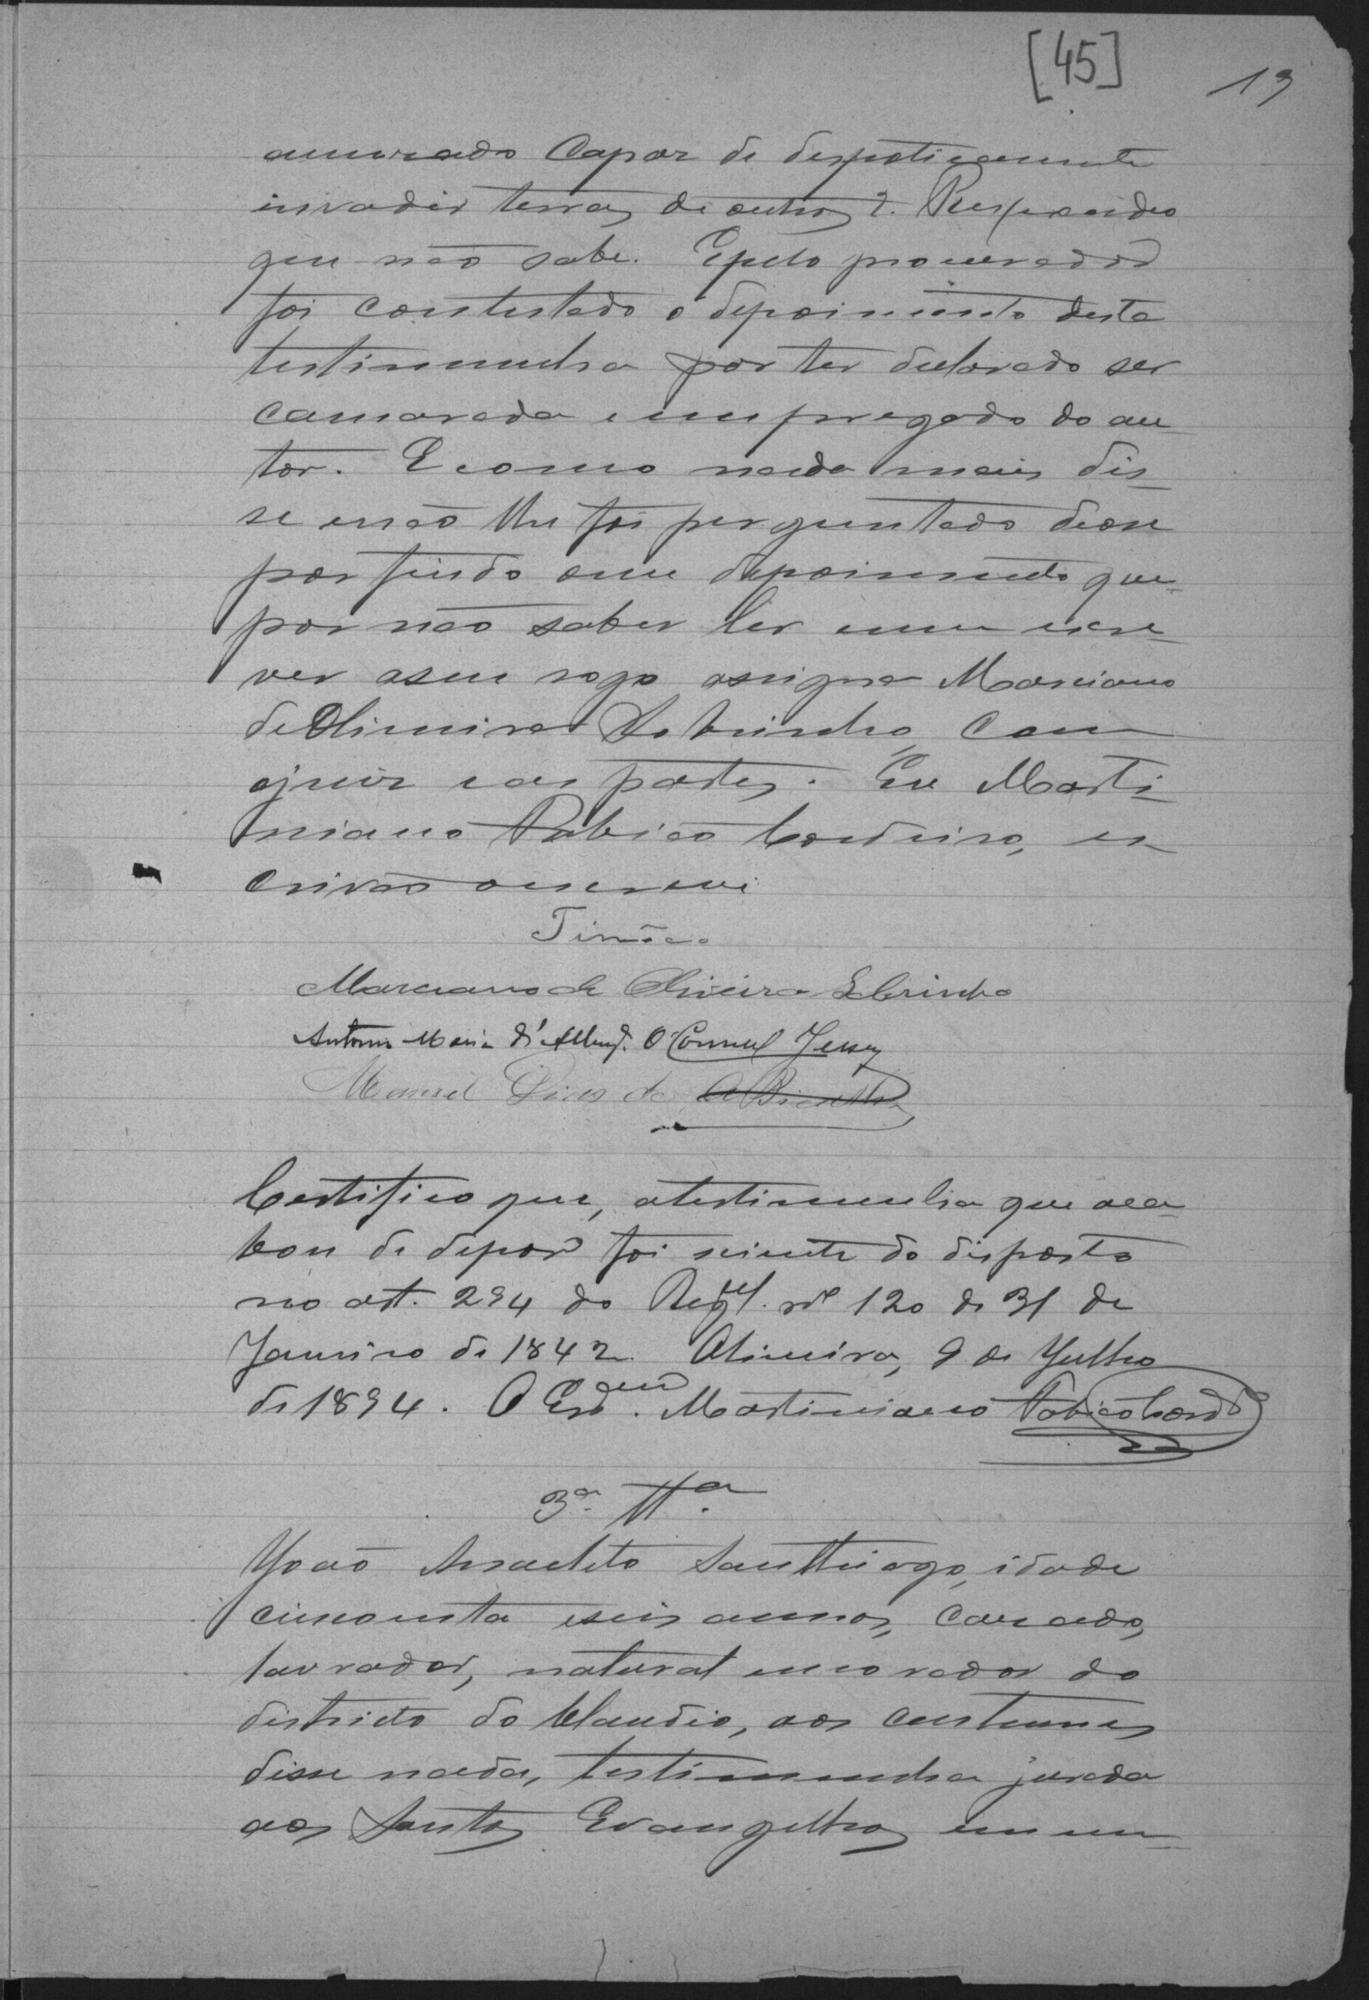 [45] 19
amorado capaz de despoticamente
invadir terras de outros?. Respondeo
que não sabe. E pelo procurador
foi contestado o depoimento desta
testimunha por ter declarado ser
camarada e empregado do au
tor. E como nada mais dis_
se e não lhe foi perguntado deose
por findo oseu depoimento que_
por não saber ler e nem escre_
ver aseu rogo assigna Marciano
de Oliveira Sobrinho, com
ojuiz e as partes. Eu Marti_
niano Cordeiro, es
crivão oescrevi
Marciano de Oliveira Sobrinho
Antonio Maria
Manoel Dias de
Certifico que, atestimunha que aca_
bou de depor foi sciente do disposto
no art. 294 do Regl. nº 120 de 31 de
Janeiro de 1842. Oliveira, 9 de Julho
de 1894. O Escm. Martiniano
3ª. Ttª.
João Anacleto Santhiago, idade
cincoenta e seis annos, casado,
lavrador, natural e morador do
districto do Claudio, aos custumes
disse nada, testimunha jurada
aos Santos Evangelhos em um_